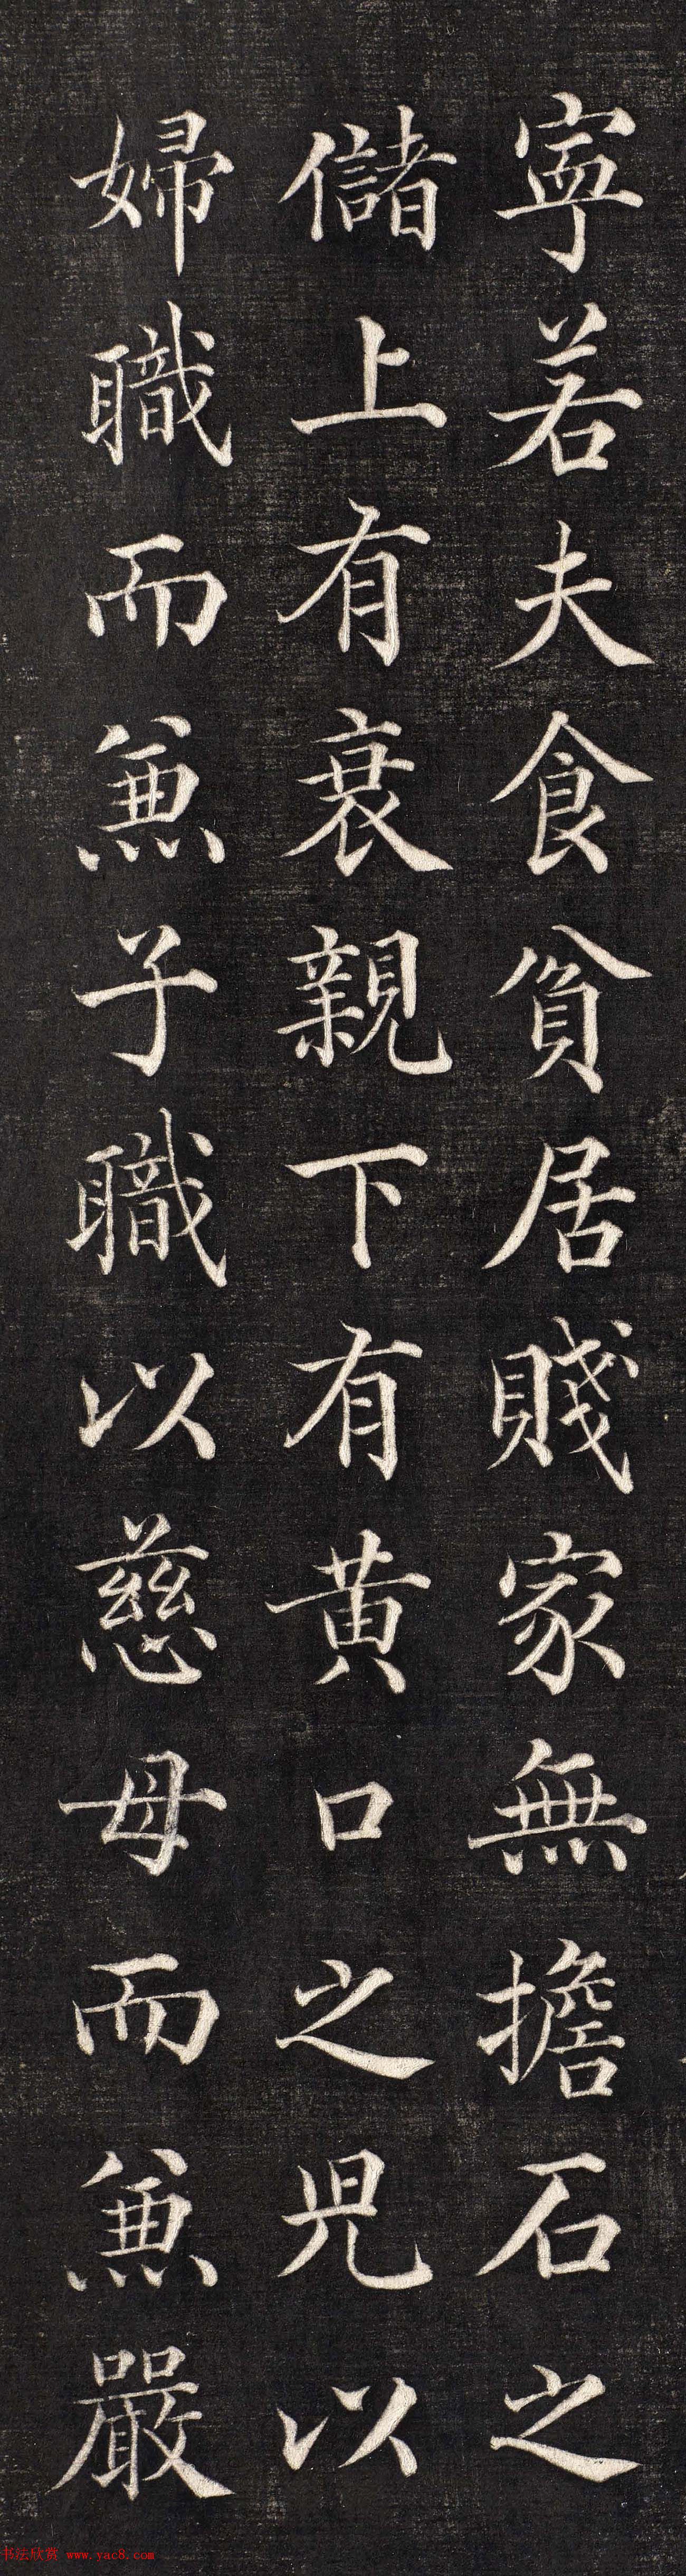 寧若夫食貧居賤家無擔石之
儲上有衰親下有黄口之児以
婦職而兼子職以慈母而兼嚴
书法欣赏 www.yac8.com